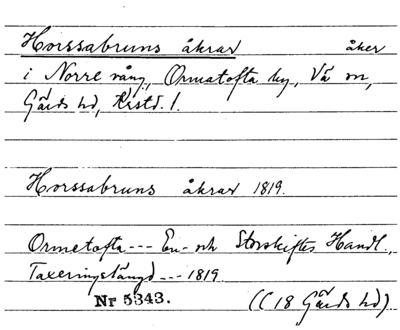 Horssabruns åkrar åker
i Norre vång, Ormatofta by, Vä sn,
Gärds hd, Krstd. l.
Horssabruns åkrar 1819.
Ormetofta --- En- och Storskiftes Handl.,
Taxeringslängd --- 1819.
Nr 5343. (C 18 Gärds hd)